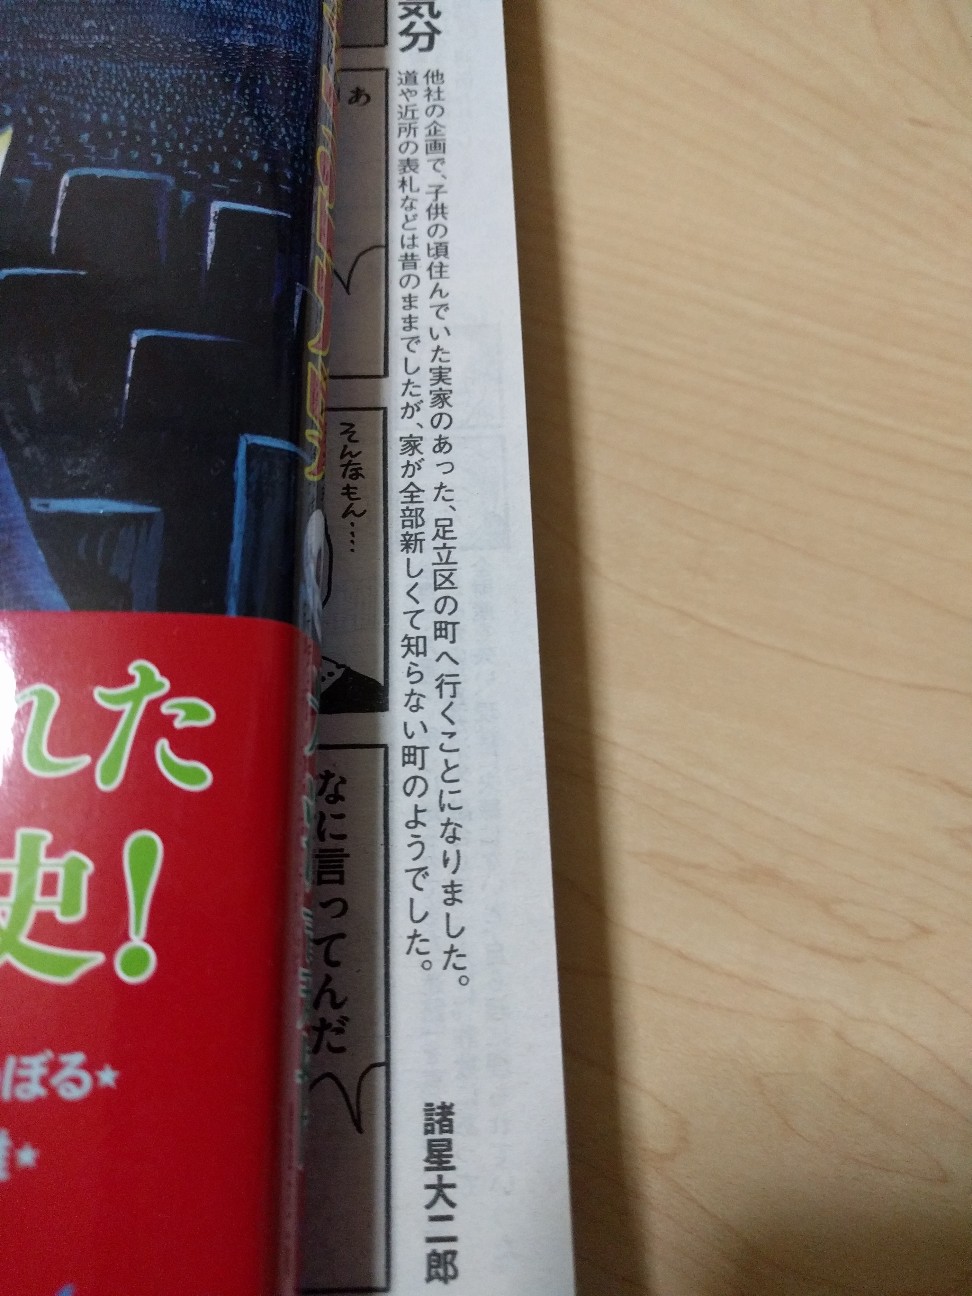 気分
他社の企画で、子供の頃住んでいた実家のあった、足立区の町へ行くことになりました。
道や近所の表札などは昔のままでしたが、家が全部新しくて知らない町のようでした。
諸星大二郎
あ
そんなもん……
なに言ってんだ
れた
史!
ぼる★